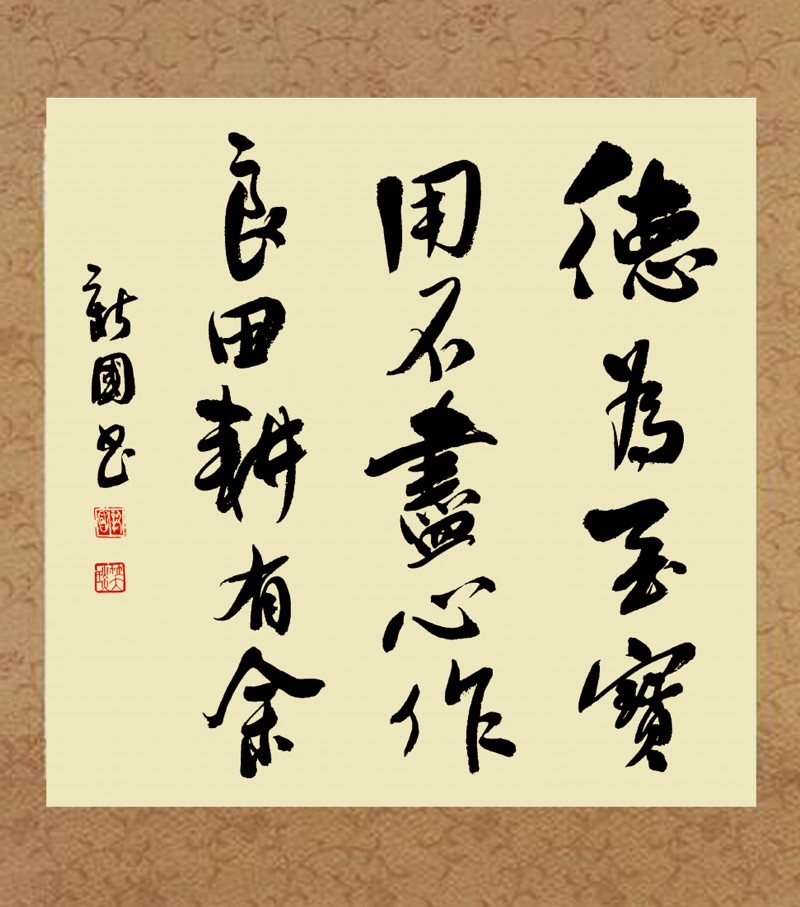 德為至寶
用不盡心作
良田耕有余
新國书